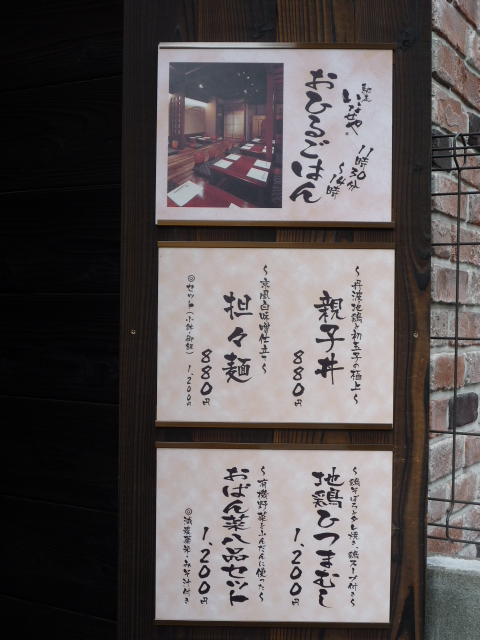 いなせや
11時30分
〜14時
おひるごはん
〜丹波地鶏と初玉子の極上〜
親子丼
880円
〜京風白味噌仕立〜
担々麺
880円
◎セット(小鉢・御飯) 1,200円
〜鶏そぼろとタレ焼き、鶏スープ付き〜
地鶏ひつまむし
1,200円
〜有機野菜をふんだんに使った〜
おばん菜八品セット
1,200円
みそ汁付き